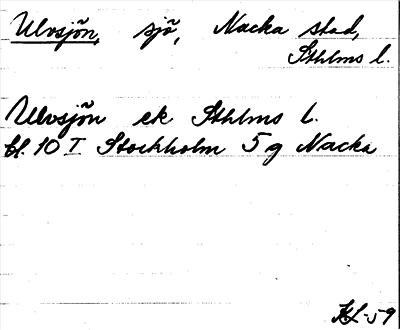 Ulvsjön, sjö, Nacka stad,
Sthlms l.
Ulvsjön ek Sthlms l.
bl. 10 I Stockholm 5 g Nacka
KL-59